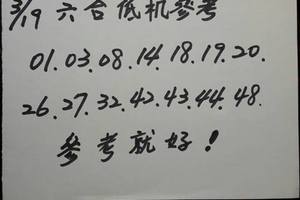 3/19 六合低机參考
01.03.08.14.18.19.20.
26.27.32.42.43.44.48.
參考就好!